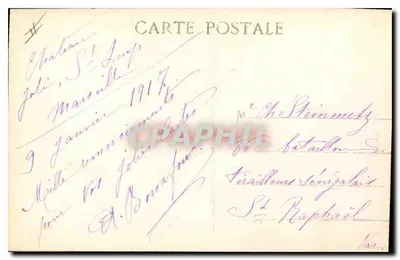 CARTE POSTALE
Chateau
Jolie, St Loup,
Marseille
9 Janvier 1917
Mille remerciements
pour vos jolies cartes
A.
CPAPHIL
Mr Ch Steinmetz
bataillon de
tirailleurs sénégalais
St Raphaël
Var